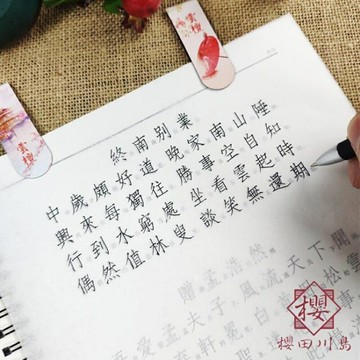 終南別業
中歲頗好道 晚家南山陲
興來每獨往 勝事空自知
行到水窮處 坐看雲起時
偶然值林叟 談笑無還期
贈孟浩然
吾愛孟夫子 風流天下聞
軒冕 白首 松雲
櫻
櫻田川島